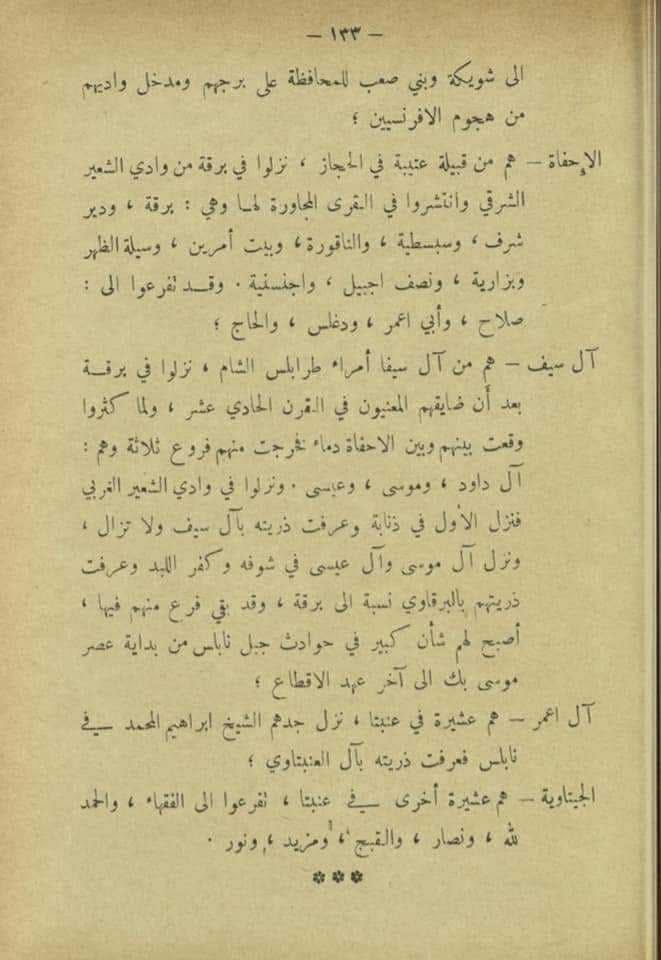 – ١٣٣ –
الى شويكة وبني صعب للمحافظة على برجهم ومدخل واديهم
من هجوم الافرنسيين ؛
الإحفاة – هم من قبيلة عتيبة في الحجاز ، نزلوا في برقة من وادي الشعير
الشرقي وانتشروا في القرى المجاورة لها وهي : برقة ، ودير
شرف ، وسبسطية ، والناقورة ، وبيت أمرين ، وسيلة الظهر
وبزارية ، ونصف اجبيل ، واجنسنية . وقد تفرعوا الى :
صلاح ، وأبي اعمر ، ودغلس ، والحاج ؛
آل سيف – هم من آل سيفا أمراء طرابلس الشام ، نزلوا في برقة
بعد أن ضايقهم المعنيون في القرن الحادي عشر ، ولما كثروا
وقعت بينهم وبين الاحفاة دماء فخرجت منهم فروع ثلاثة وهم :
آل داود ، وموسى ، وعيسى . ونزلوا في وادي الشعير الغربي
فنزل الأول في ذنابة وعرفت ذريته بآل سيف ولا تزال ،
ونزل آل موسى وآل عيسى في شوفه وكفر اللبد وعرفت
ذريتهم بالبرقاوي نسبة الى برقة ، وقد بقي فرع منهم فيها ،
أصبح لهم شأن كبير في حوادث جبل نابلس من بداية عصر
موسى بك الى آخر عهد الاقطاع ؛
آل اعمر – هم عشيرة في عنبتا ، نزل جدهم الشيخ ابراهيم المحمد في
نابلس فعرفت ذريته بآل العنبتاوي ؛
الجيتاوية – هم عشيرة أخرى في عنبتا ، تفرعوا الى الفقهاء ، والحمد
لله ، ونصار ، والقبج ، ومزيد ، ونور .
***